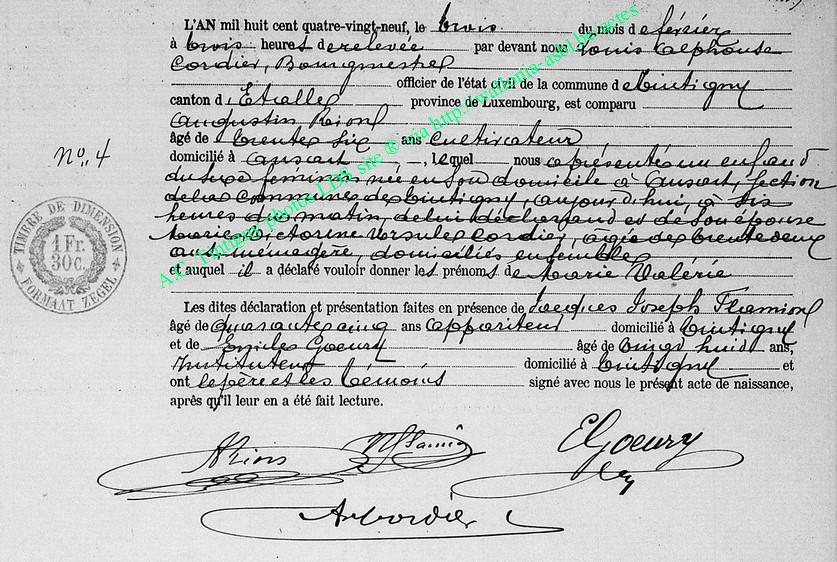 L'AN mil huit cent quatre-vingt-neuf, le trois du mois de février
à trois heures de relevée par devant nous Louis Alphonse
Cordier, Bourgmestre
officier de l'état civil de la commune de Tintigny
canton d'Etalle province de Luxembourg, est comparu
Augustin Rion
âgé de trente six ans cultivateur
domicilié à Ansart, lequel nous a présenté un enfant
du sexe féminin née en son domicile à Ansart, section
de la commune de Tintigny, aujourd'hui, à six
heures du matin, de lui déclarant et de son épouse
Marie Victorine Ursule Cordier, âgée de trente deux
ans ménagère, domiciliés ensemble
et auquel il a déclaré vouloir donner les prénoms de Marie Valérie
Les dites déclaration et présentation faites en présence de Jacques Joseph Flamion
âgé de quarante cinq ans appariteur domicilié à Tintigny
et de Emile Goeury âgé de vingt huit ans,
Instituteur domicilié à Tintigny et
ont le père et les témoins signé avec nous le présent acte de naissance,
après qu'il leur en a été fait lecture.
No. 4
TIMBRE DE DIMENSION
1 Fr.
30 C.
FORMAAT ZEGEL
ARion
EGoeury
ArCordier
photos LDS site ® via http://wallonia-asbl.be/actes